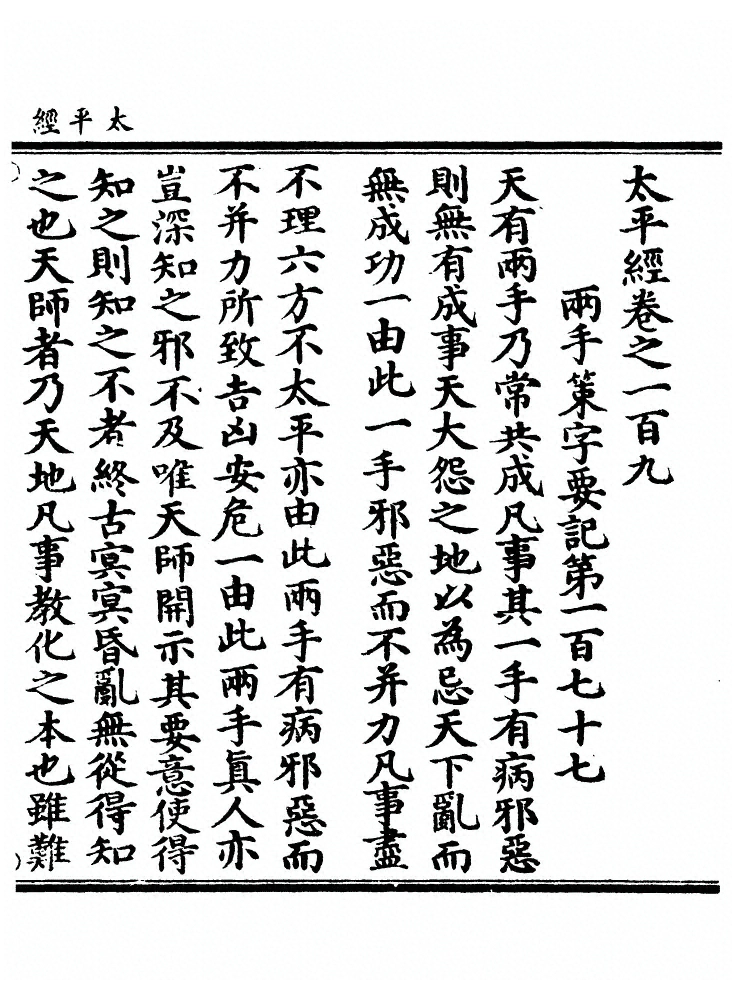 太平經
太平經卷之一百九
兩手策字要記第一百七十七
天有兩手乃常共成凡事其一手有病邪惡
則無有成事天大怨之地以為忌天下亂而
無成功一由此一手邪惡而不并力凡事盡
不理六方不太平亦由此兩手有病邪惡而
不并力所致吉凶安危一由此兩手真人亦
豈深知之邪不及唯天師開示其要意使得
知之則知之不者終古冥冥昏亂無從得知
之也天師者乃天地凡事教化之本也雖難